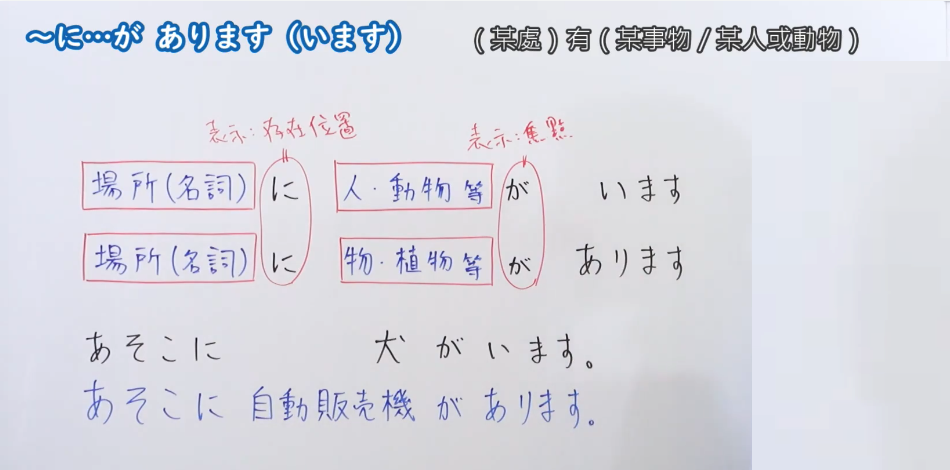 ～に…が あります（います）
（某處）有（某事物/某人或動物）
表示:存在位置
表示:焦點
場所(名詞) に 人・動物等 が います
場所(名詞) に 物・植物等 が あります
あそこに 犬がいます。
あそこに 自動販売機があります。